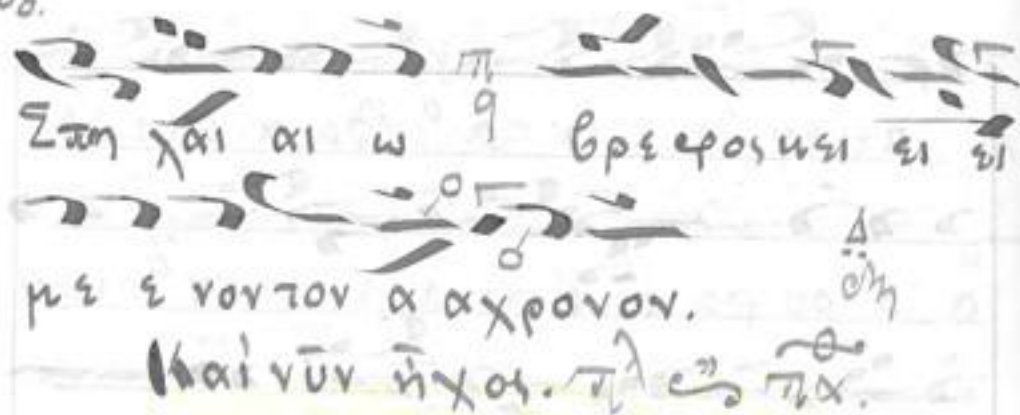 Σπη λαι αι ω βρε φος κει ει ει
με ε νον τον α αχρονον.
Καὶ νῦν ἦχος. πλ πα.